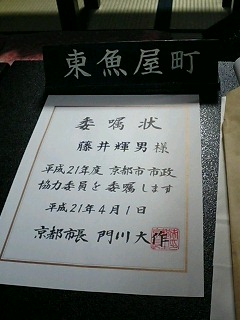 東魚屋町
委嘱状
藤井輝男様
平成21年度 京都市市政
協力委員を委嘱します
平成21年4月1日
京都市長 門川大作